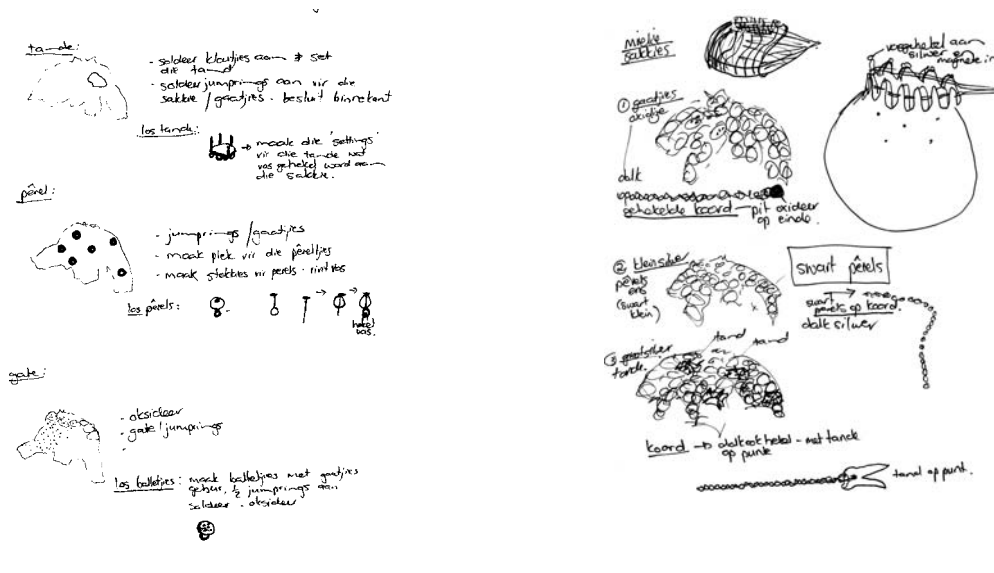 tande:
- soldeer kloutjies aan & set
die tand
- soldeer jumprings aan vir die
sakkie / gaatjies - besluit
los tande:
→ maak die 'settings'
vir die tande wat
vas gehekel word aan
die sakkie.
pêrel:
- jumprings / gaatjies
- maak plek vir die pêreltjies
- maak stokkies vir perels -
los pêrels:
hekel
vas.
gate:
- oksideer
- gate / jumprings
los balletjies: maak balletjies met gaatjies
½ jumprings aan
soldeer - oksideer
mielie
sakkies
vasgehekel aan
silwer en
① gaatjies
dalk
gehekelde koord - pit oxideer
op einde.
② klein silwer
pêrels
ens
(swart
klein)
swart pêrels
swart
perels op koord.
dalk silwer
tand
tand
③ groot silwer
tande.
koord → dalk ook hekel - met tande
op punte
tand op punt.